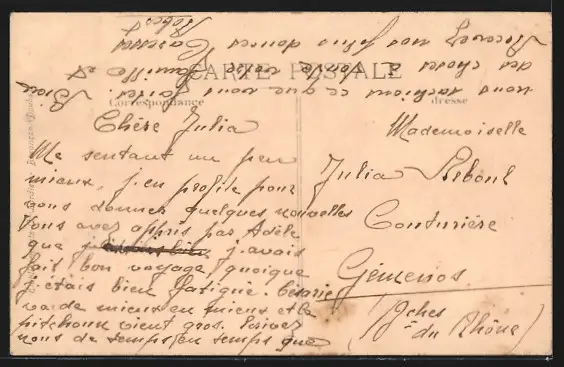 CARTE POSTALE
Correspondance
Chère Julia
Me sentant un peu
mieux, j'en profite pour
vous donner quelques nouvelles
Vous avez appris par Adèle
que j'avais
fait bon voyage, quoique
j'étais bien fatigué. Césarie
va de mieux en mieux et le
pitchoun vient gros. Ecrivez
nous de temps en temps que
nous sachions ce que vous faites.
des choses à toute votre famille
Recevez nos plus doux Caresses
Mademoiselle
Julia Reboul
Couturière
Gémenos
(Bches du Rhône)